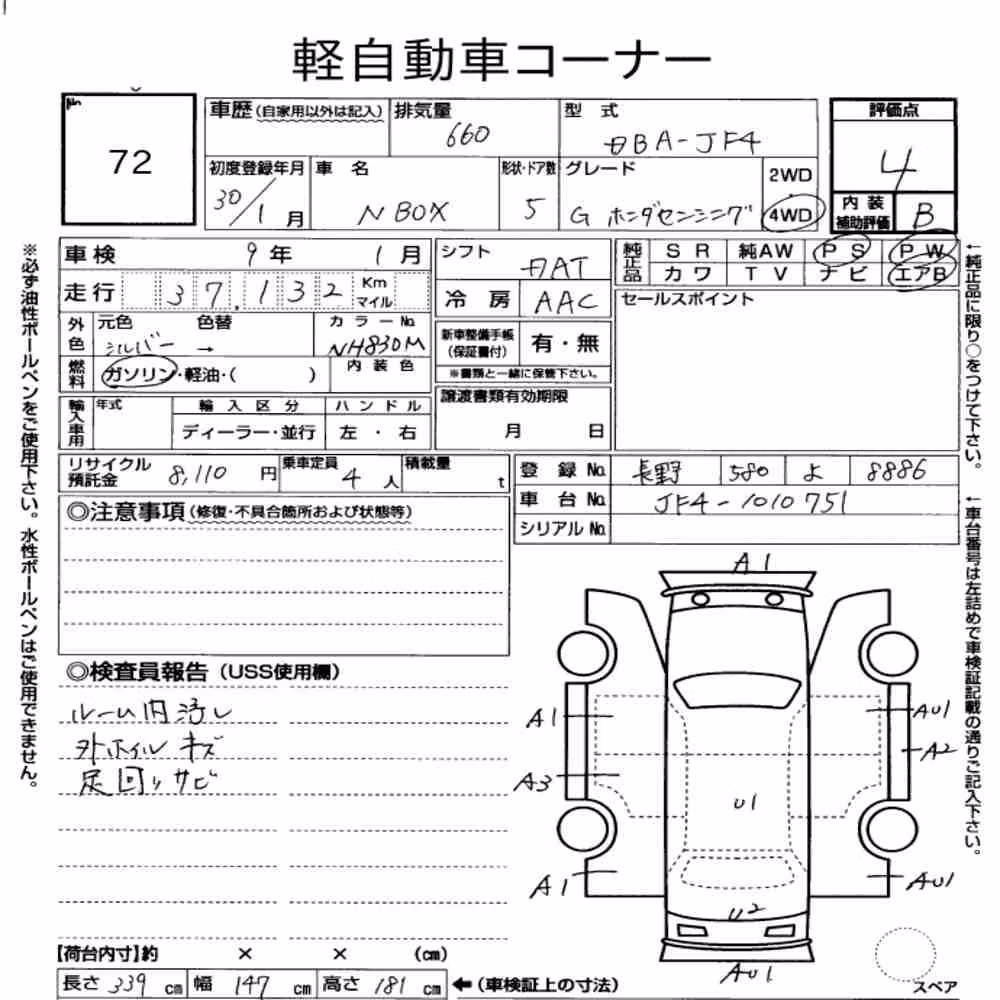 軽自動車コーナー
No. 72
車歴(自家用以外は記入) 排気量 660 型式 DBA-JF4 評価点 4
初度登録年月 30/1月 車名 N BOX 形状・ドア数 5 グレード G ホンダセンシング 2WD 4WD 内装補助評価 B
車検 9年 1月 シフト DAT 純正品 SR 純AW PS PW
カワ TV ナビ エアB
走行 37,132 Km マイル 冷房 AAC セールスポイント
外色 元色 シルバー 色替 → カラーNo. NH830M 新車整備手帳(保証書付) 有・無
燃料 ガソリン・軽油・( ) 内装色 ※書類と一緒に保管下さい。
輸入車用 年式 輸入区分 ハンドル 譲渡書類有効期限
ディーラー・並行 左・右 月 日
リサイクル預託金 8,110円 乗車定員 4人 積載量 t 登録No. 長野 580 よ 8886
車台No. JF4-1010751
シリアルNo.
◎注意事項(修復・不具合箇所および状態等)
◎検査員報告(USS使用欄)
ルーム内汚レ
外ホイルキズ
足回りサビ
A1
A1 AU1
A2
A3
U1
A1 AU1
U2
AU1
スペア
【荷台内寸】約 × × (cm)
長さ 339 cm 幅 147 cm 高さ 181 cm ←(車検証上の寸法)
※必ず油性ボールペンをご使用下さい。水性ボールペンはご使用できません。
←純正品に限り○をつけて下さい。
←車台番号は左詰めで車検証記載の通りご記入下さい。